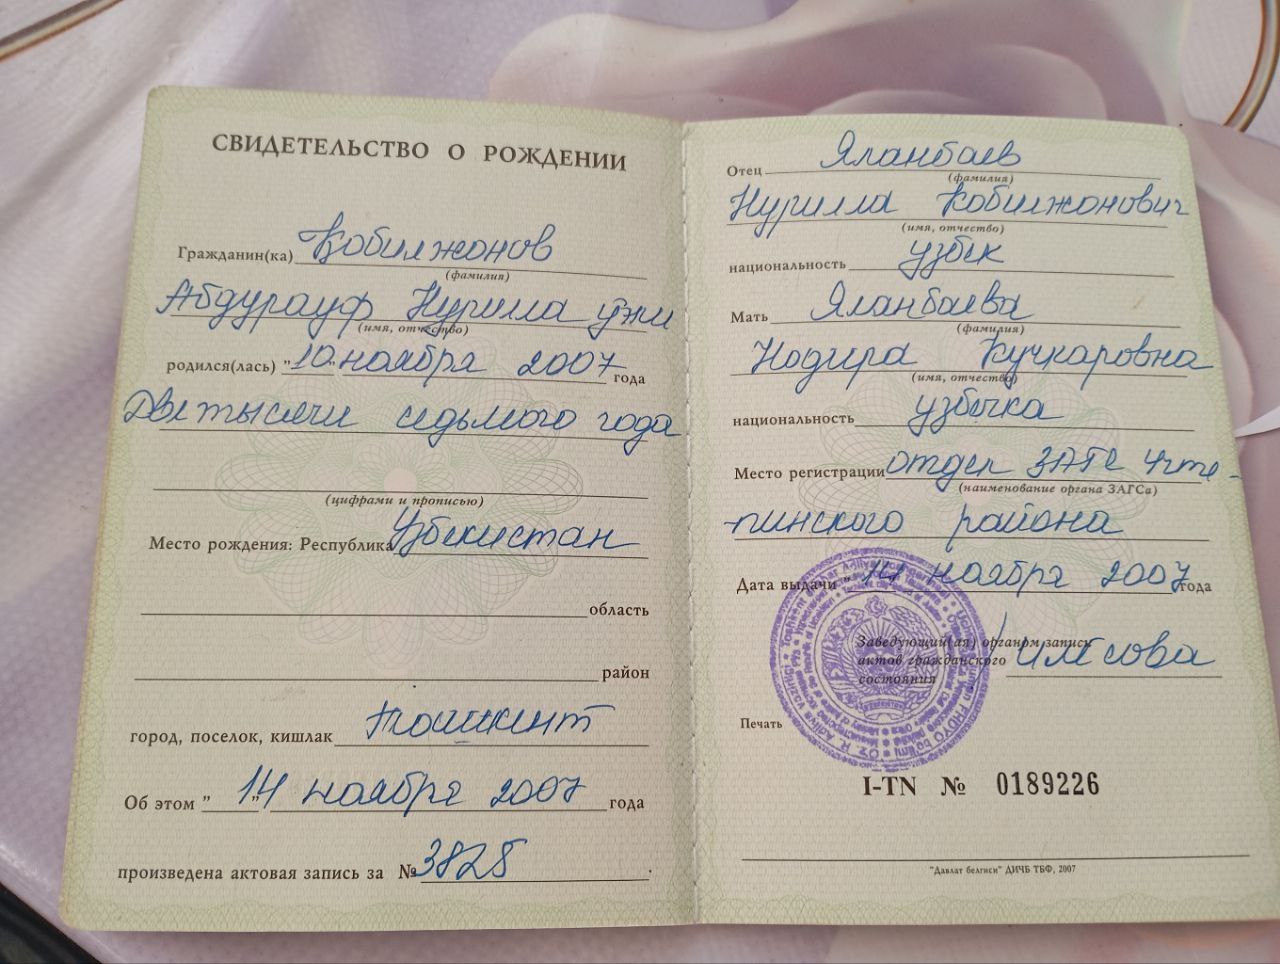 СВИДЕТЕЛЬСТВО О РОЖДЕНИИ
Гражданин(ка) Кобилжонов
(фамилия)
Абдурауф Нурилла ўғли
(имя, отчество)
родился(лась) "10" ноября 2007 года
Две тысячи седьмого года
(цифрами и прописью)
Место рождения: Республика Узбекистан
область
район
город, поселок, кишлак Ташкент
Об этом "14" ноября 2007 года
произведена актовая запись за № 3825
Отец Яланбаев
(фамилия)
Нурилла Кобилжонович
(имя, отчество)
национальность узбек
Мать Яланбаева
(фамилия)
Нодира Кучкаровна
(имя, отчество)
национальность узбечка
Место регистрации отдел ЗАГС Учте-
(наименование органа ЗАГСа)
пинского района
Дата выдачи "14 ноября 2007 года
Заведующий(ая) органом записи
актов гражданского
состояния
Печать
I-TN № 0189226
"Давлат белгиси" ДИЧБ ТБФ, 2007